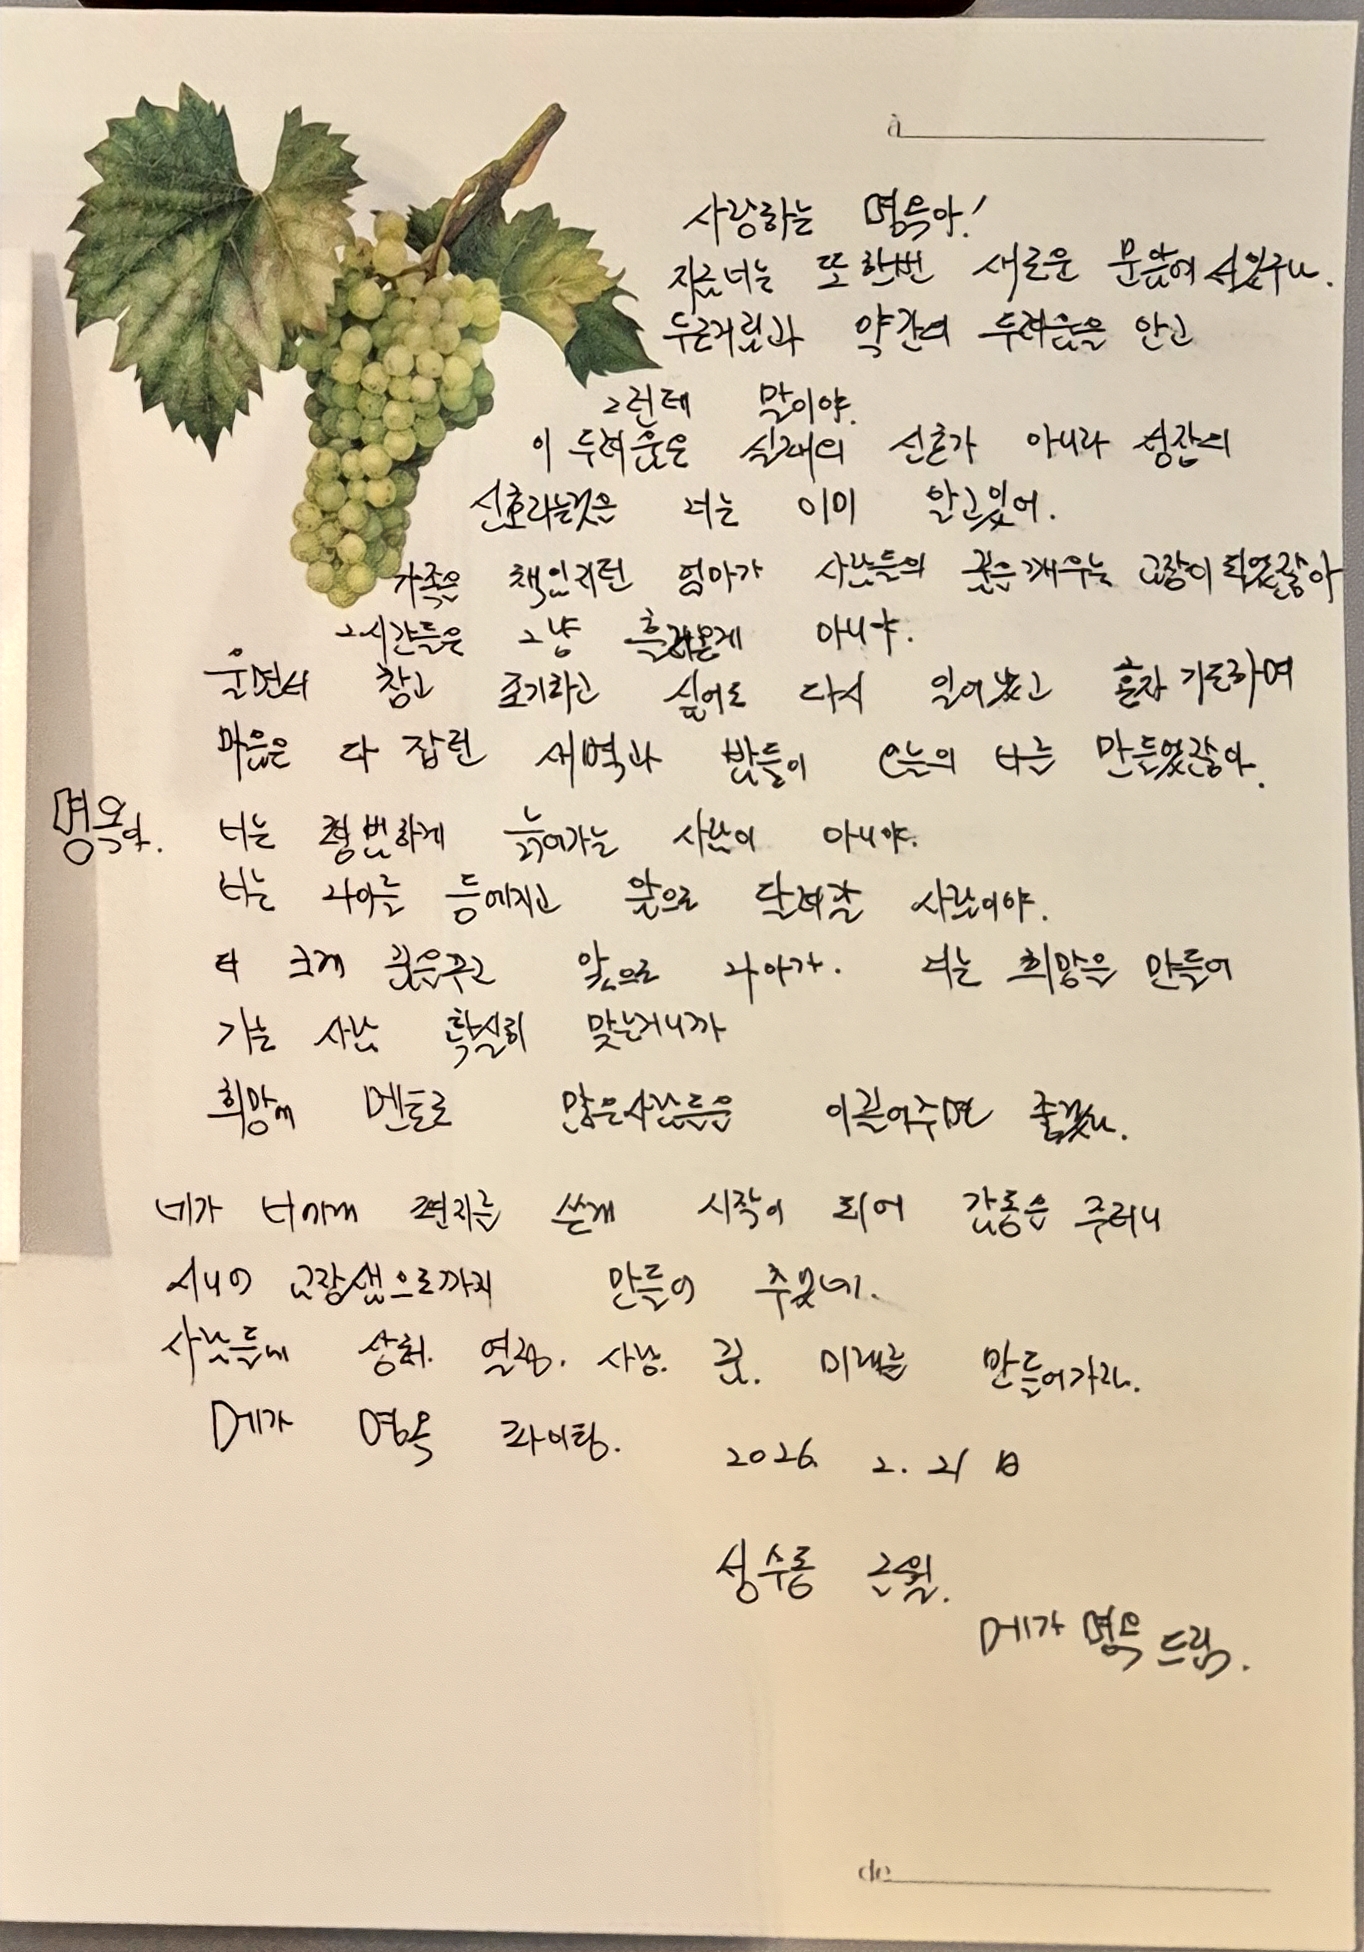 à
사랑하는 명옥아!
지금 너는 또 한번 새로운 문앞에 서있구나.
두근거림과 약간의 두려움을 안고
그런데 말이야.
이 두려움은 실패의 신호가 아니라 성장의
신호라는것은 너는 이미 알고있어.
가족은 책임지던 엄마가 사람들의 꿈을 깨우는 교장이 되었잖아
그시간들은 그냥 흘러온게 아니야.
울면서 참고 포기하고 싶어도 다시 일어났고 혼자 기도하며
마음은 다 잡런 새벽과 밤들이 오늘의 너를 만들었잖아.
명옥아. 너는 평범하게 늙어가는 사람이 아니야.
너는 나이를 등에지고 앞으로 달려갈 사람이야.
더 크게 꿈을꾸고 앞으로 나아가. 너는 희망을 만들어
가는 사람 확실히 맞는거니까
희망에 멘토로 많은사람들을 이끌어주면 좋겠다.
네가 너에게 편지를 쓴게 시작이 되어 감동을 주더니
시니어 교장샘으로까지 만들어 주었네.
사람들에 상처. 열정. 사랑. 꿈. 미래를 만들어가라.
메가 명옥 화이팅.
2026. 2. 21 日
성수동 근월.
메가 명옥 드림.
de